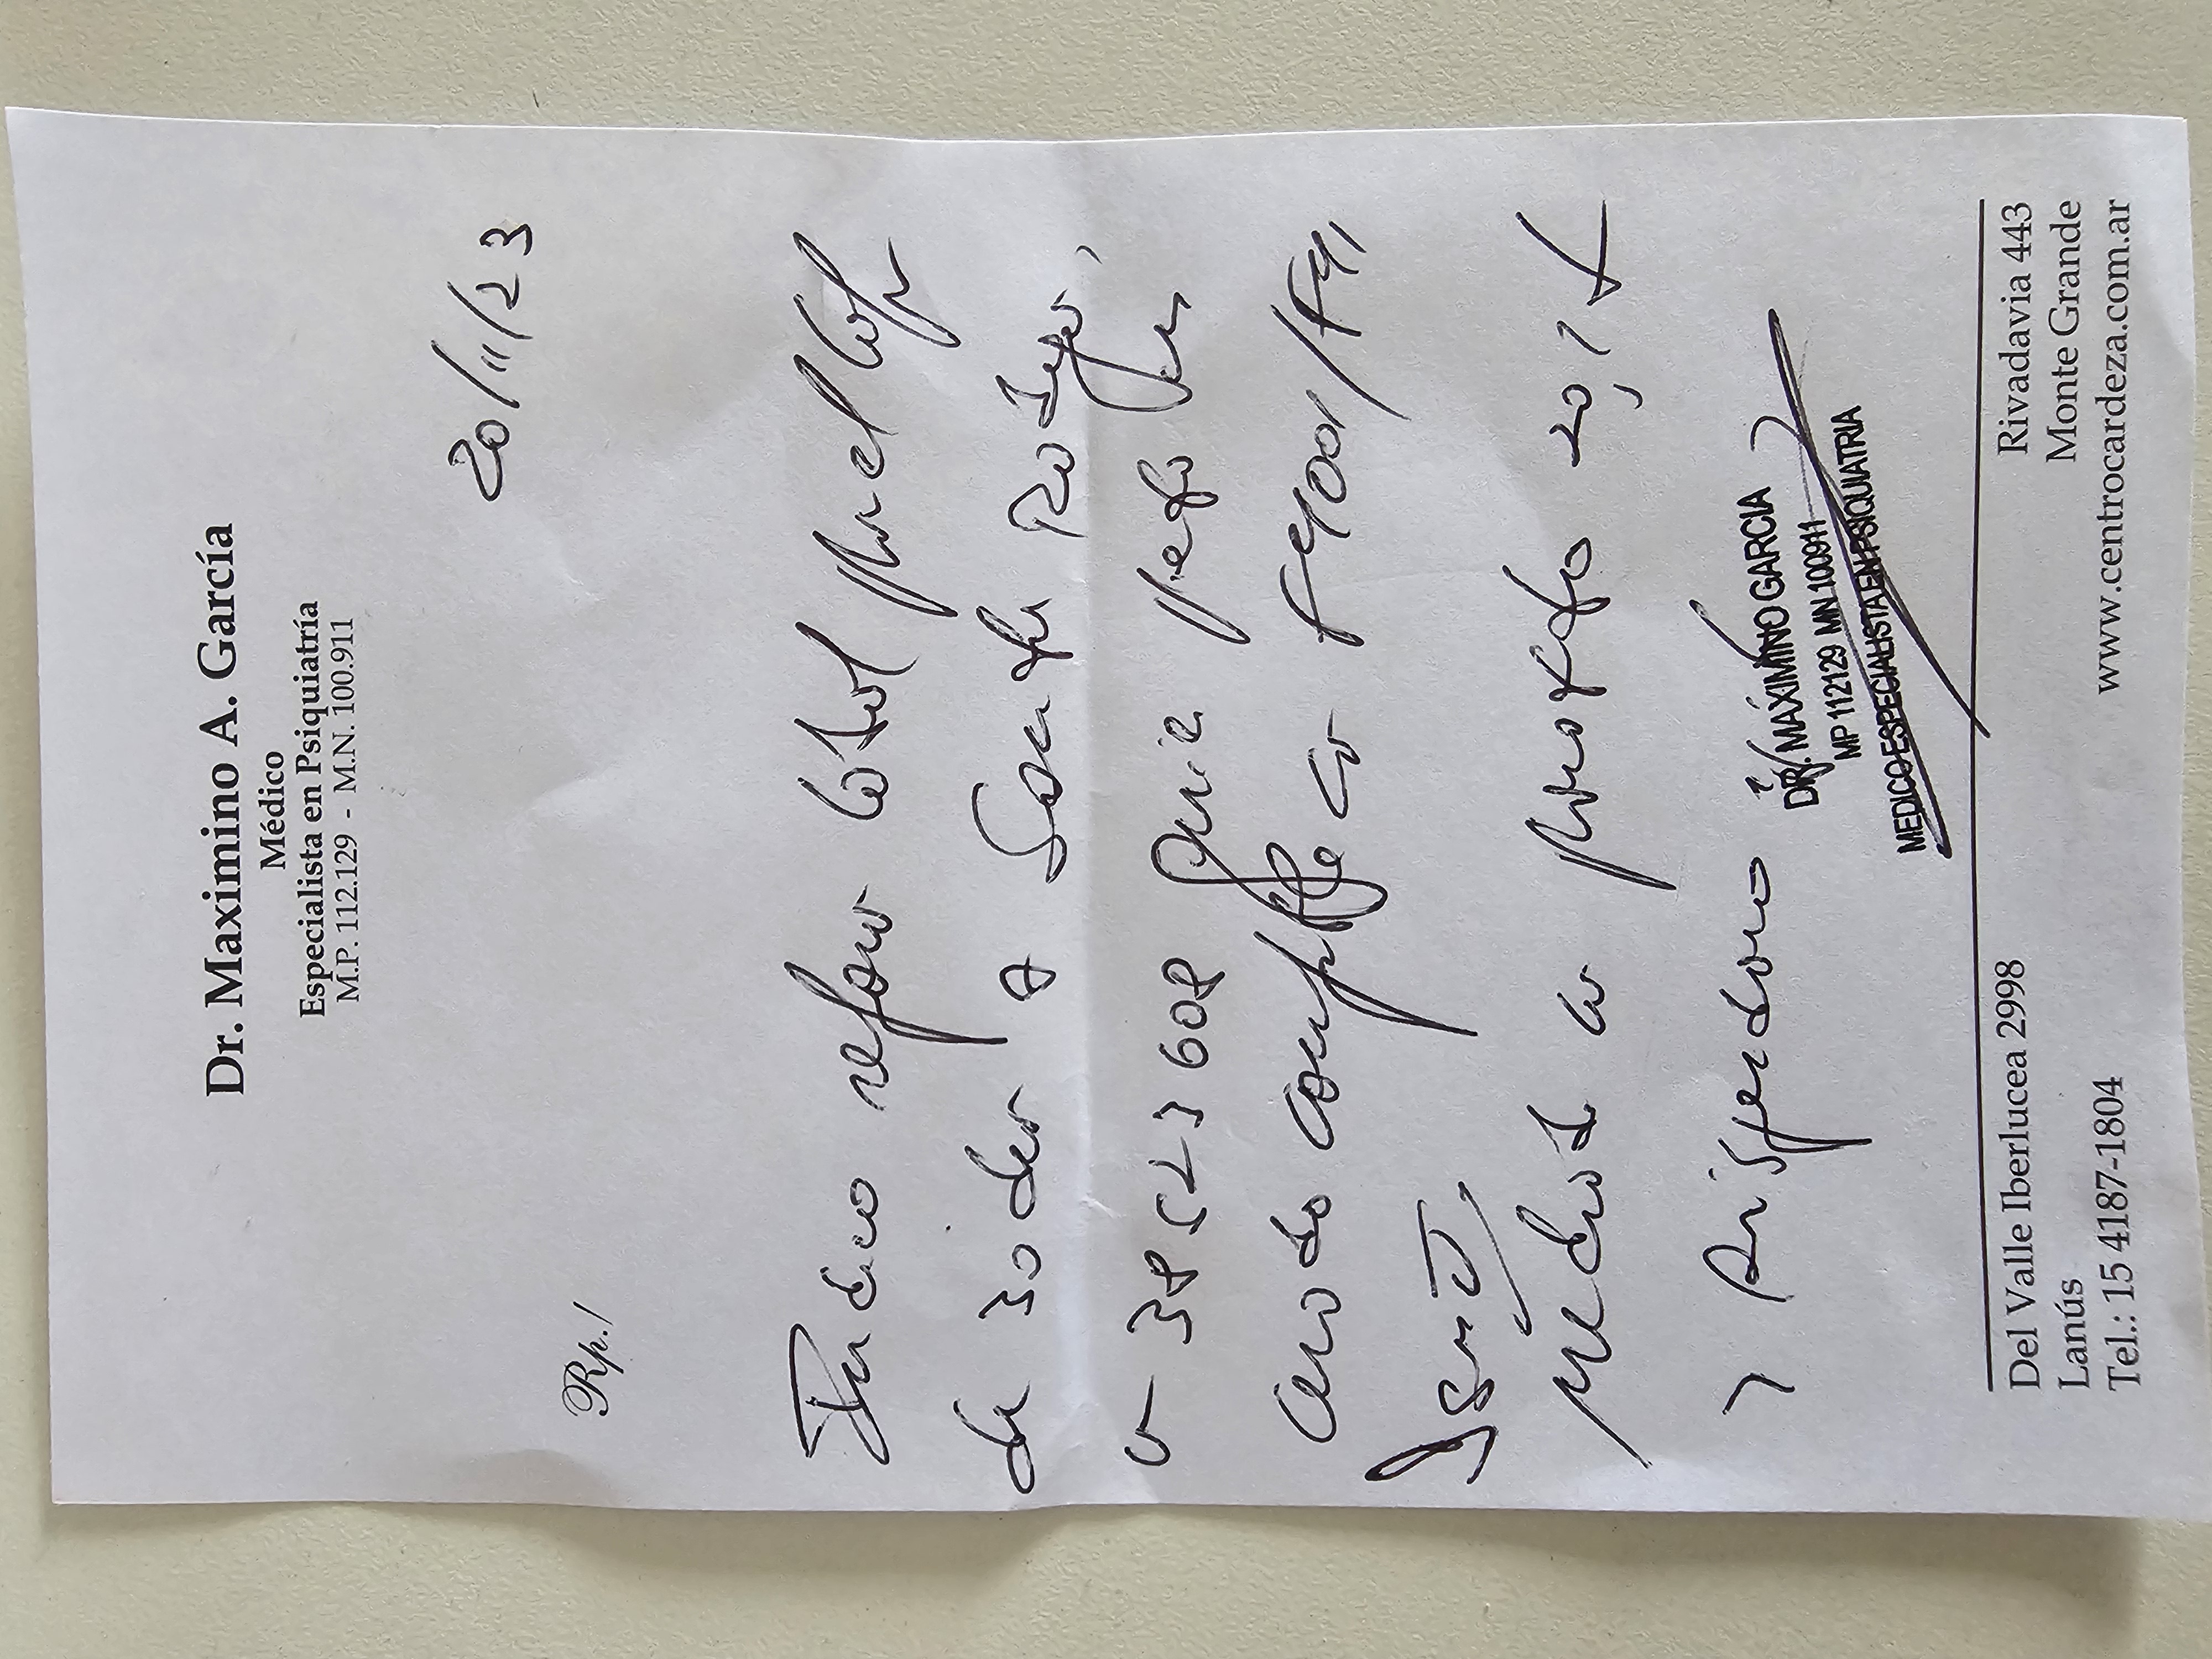 Dr. Maximino A. García
Médico
Especialista en Psiquiatría
M.P. 112.129 - M.N. 100.911
20/11/23
Rp./
Indico reposo total por el
de 30 dias a Rodrigo,
38523608 quien
cuadro compatible con F4001/F41
DSM IV,
Medicado con 20, 1
y Risperidona
DR. MAXIMINO GARCIA
MP 112129 MN 100911
MEDICO ESPECIALISTA EN PSIQUIATRIA
Del Valle Iberlucea 2998
Lanús
Tel.: 15 4187-1804
Rivadavia 443
Monte Grande
www.centrocardeza.com.ar